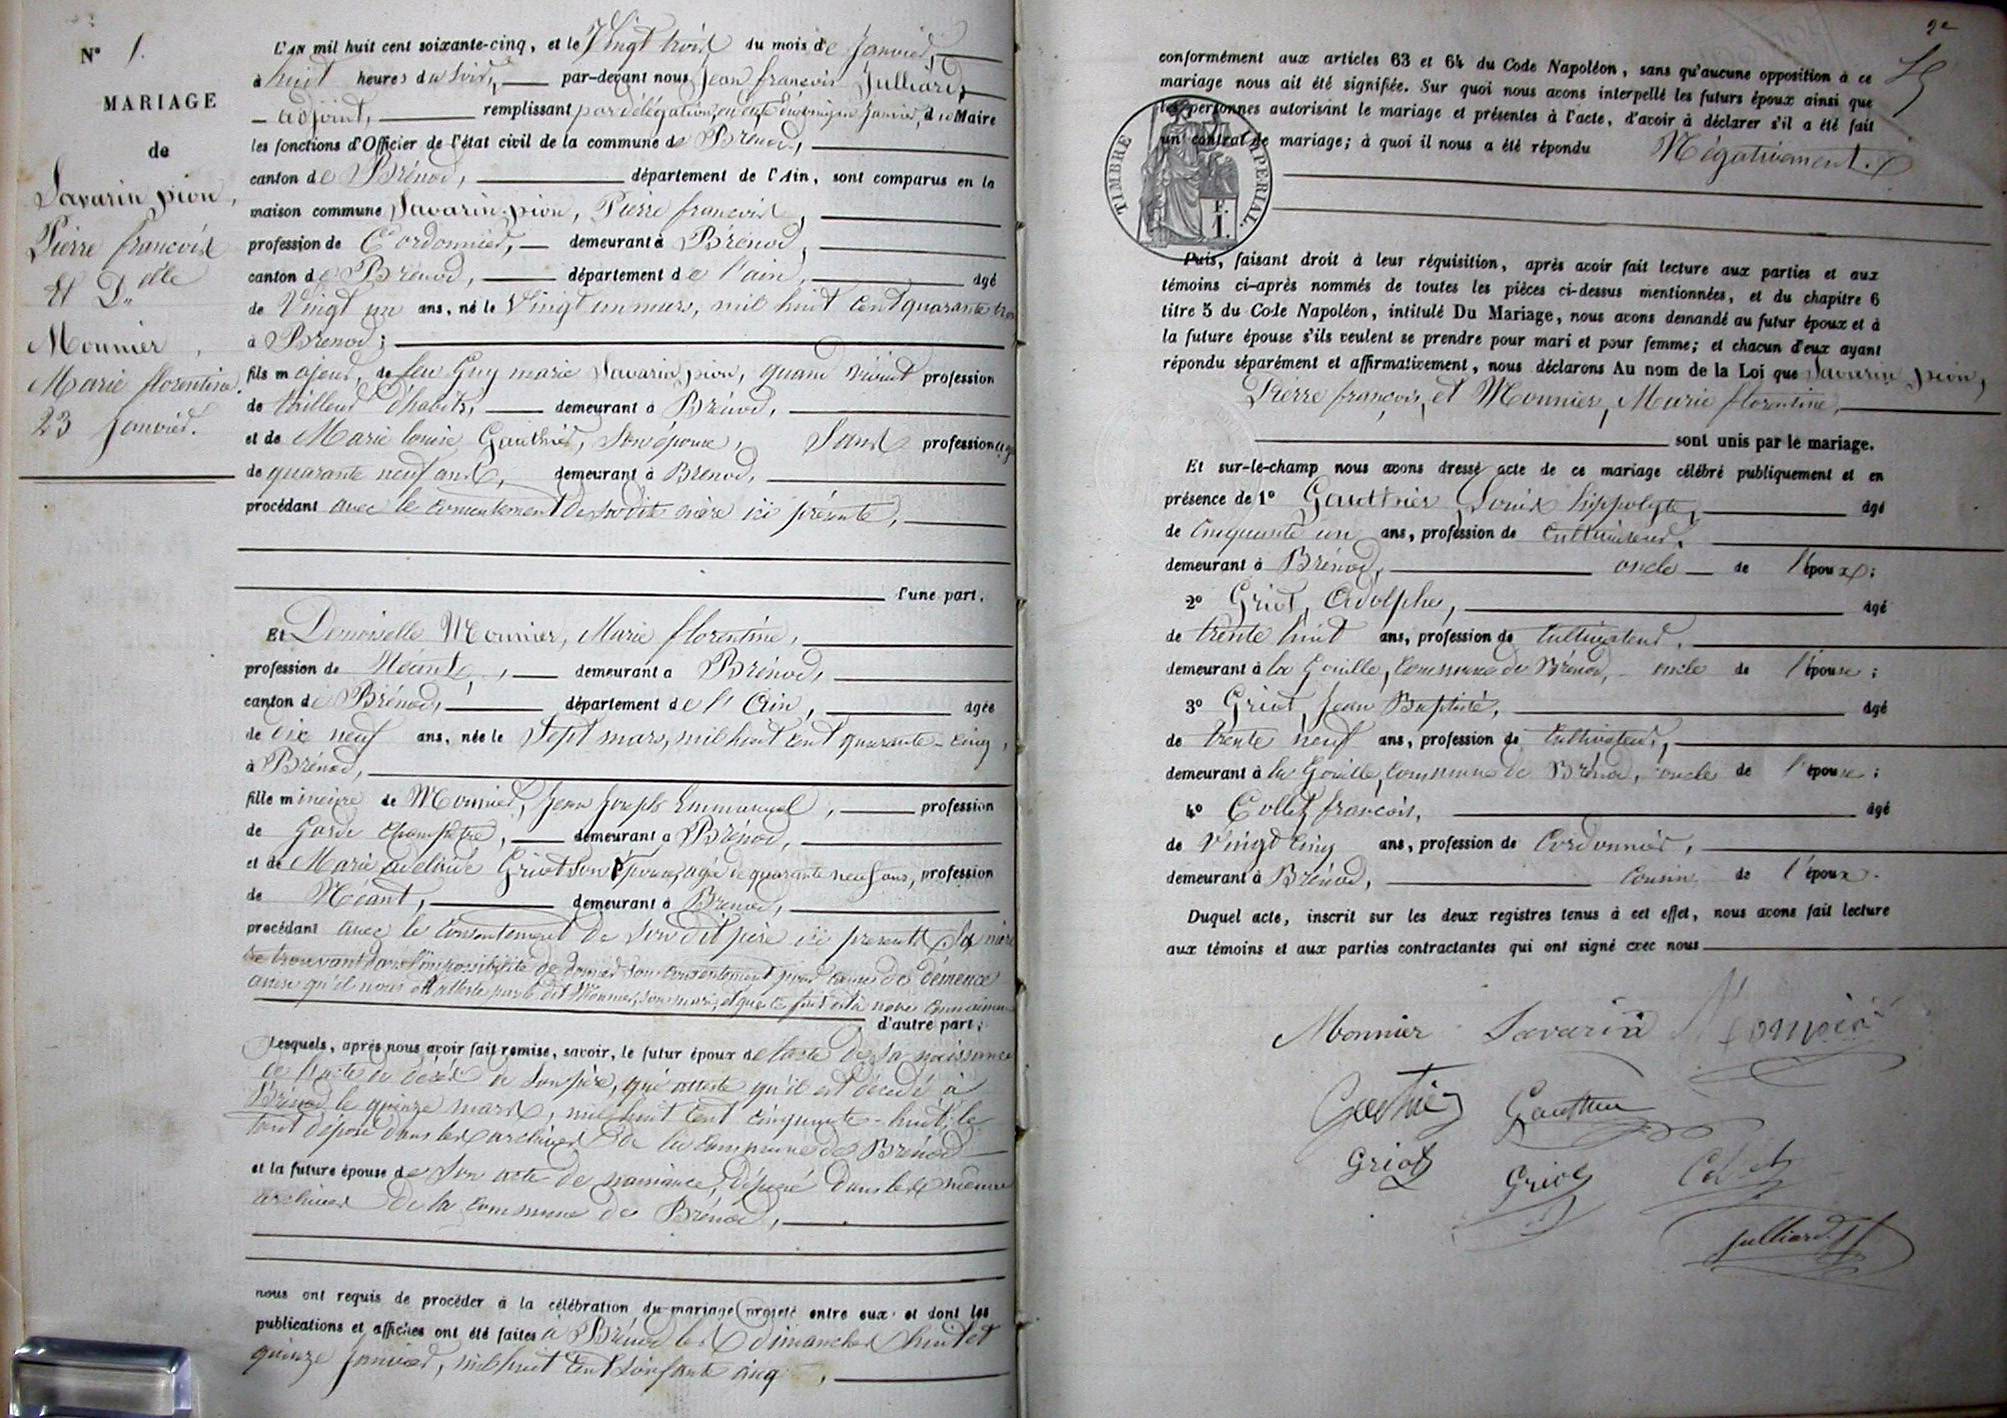 N° 1.
MARIAGE
de
Savarin pion,
Pierre françois
Et D.elle
Monnier,
Marie florentine.
23 janvier.
L'AN mil huit cent soixante-cinq, et le Vingt trois du mois de Janvier,
à huit heures du soir, par-devant nous Jean françois Julliard,
adjoint, remplissant par délégation, en date du vingt janvier, du Maire
les fonctions d'Officier de l'état civil de la commune de Brénod,
canton de Brénod, département de l'Ain, sont comparus en la
maison commune Savarin-pion, Pierre françois,
profession de Cordonnier, demeurant à Brénod,
canton de Brénod, département de l'ain, âgé
de Vingt un ans, né le Vingt un mars, mil huit cent quarante trois
à Brénod;
fils majeur, de feu Guy marie Savarin pion, quand vivait profession
de tailleur d'habits, demeurant à Brénod,
et de Marie louise Gauthier, son épouse, Sans profession agée
de quarante neuf ans, demeurant à Brénod,
procédant avec le consentement de sadite mère ici présente,
d'une part.
Et Demoiselle Monnier, Marie florentine,
profession de Néant, demeurant a Brénod,
canton de Brénod, département de l'Ain, agée
de dix neuf ans, née le Sept mars, mil huit cent quarante-cinq,
à Brénod,
fille mineure de Monnier, Jean Joseph Emmanuel, profession
de Garde Champêtre, demeurant a Brénod,
et de Marie adelaide Griot son Epouse, agée de quarante neuf ans, profession
de Néant, demeurant à Brénod,
procédant avec le consentement de son dit père ici présent & sa mère
se trouvant dans l'impossibilité de donner son consentement pour cause de démence
ainsi qu'il nous est attesté par le dit Monnier, son mari, et que le fait est à notre connaissance
d'autre part;
Lesquels, après nous avoir fait remise, savoir, le futur époux de l'acte de sa naissance
de l'acte de décès de son père, qui atteste qu'il est décédé à
Brénod le quinze mars, mil huit cent cinquante-huit; le
tout déposé dans les archives de la commune de Brénod
et la future épouse de son acte de naissance, déposé dans les mêmes
archives de la commune de Brénod,
nous ont requis de procéder à la célébration du mariage projeté entre eux et dont les
publications et affiches ont été faites à Brénod les dimanches huit et
quinze Janvier, mil huit cent soixante cinq,
2e
conformément aux articles 63 et 64 du Code Napoléon, sans qu'aucune opposition à ce
mariage nous ait été signifiée. Sur quoi nous avons interpellé les futurs époux ainsi que
les personnes autorisant le mariage et présentes à l'acte, d'avoir à déclarer s'il a été fait
un contrat de mariage; à quoi il nous a été répondu Négativement.
TIMBRE IMPERIAL.
F. 1.
Puis, faisant droit à leur réquisition, après avoir fait lecture aux parties et aux
témoins ci-après nommés de toutes les pièces ci-dessus mentionnées, et du chapitre 6
titre 5 du Code Napoléon, intitulé Du Mariage, nous avons demandé au futur époux et à
la future épouse s'ils veulent se prendre pour mari et pour femme; et chacun d'eux ayant
répondu séparément et affirmativement, nous déclarons Au nom de la Loi que Savarin pion,
Pierre françois, et Monnier, Marie florentine,
sont unis par le mariage.
Et sur-le-champ nous avons dressé acte de ce mariage célébré publiquement et en
présence de 1° Gauthier, Louis hippolyte, âgé
de Cinquante un ans, profession de Cultivateur,
demeurant à Brénod, oncle de l'époux;
2° Griot, Adolphe, âgé
de trente huit ans, profession de Cultivateur,
demeurant à la Gouille, Commune de Brénod, oncle de l'épouse;
3° Griot, Jean Baptiste, âgé
de trente neuf ans, profession de Cultivateur,
demeurant à la Gouille, Commune de Brénod, oncle de l'épouse;
4° Collet, francois, âgé
de Vingt cinq ans, profession de Cordonnier,
demeurant à Brénod, Cousin de l'époux.
Duquel acte, inscrit sur les deux registres tenus à cet effet, nous avons fait lecture
aux témoins et aux parties contractantes qui ont signé avec nous
Monnier Savarin Monnier
Gauthier Gauthier
Griot Griot Collet
Julliard